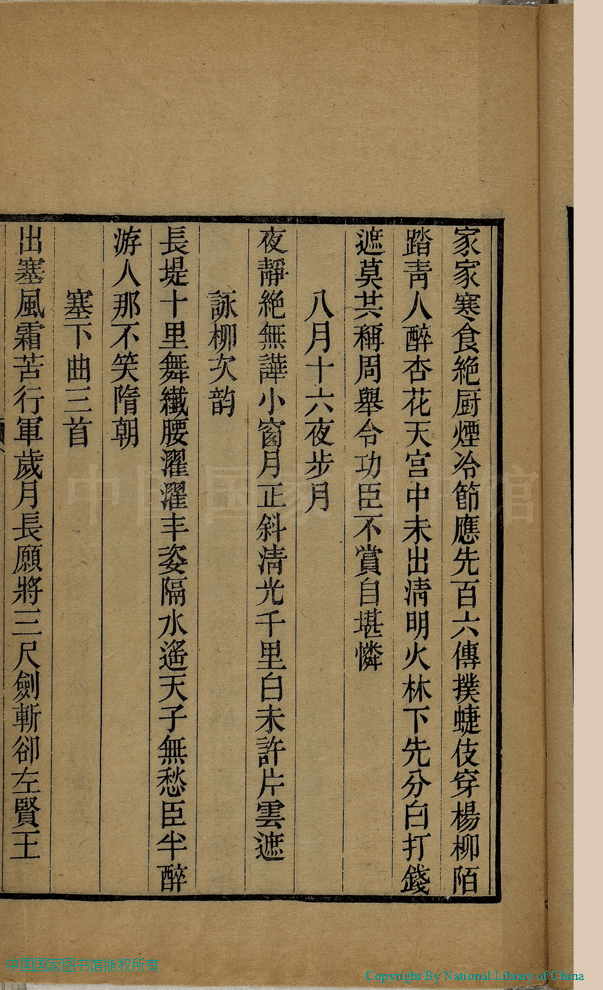 家家寒食絶厨煙冷節應先百六傳撲蜨伎穿楊柳陌
踏青人醉杏花天宮中未出清明火林下先分白打錢
遮莫共稱周舉令功臣不賞自堪憐
八月十六夜步月
夜靜絶無譁小窗月正斜清光千里白未許片雲遮
詠柳次韵
長堤十里舞纖腰濯濯丰姿隔水遙天子無愁臣半醉
游人那不笑隋朝
塞下曲三首
出塞風霜苦行軍歲月長願將三尺劍斬卻左賢王
中国国家图书馆
中国国家图书馆版权所有
Copyright By National Library of China